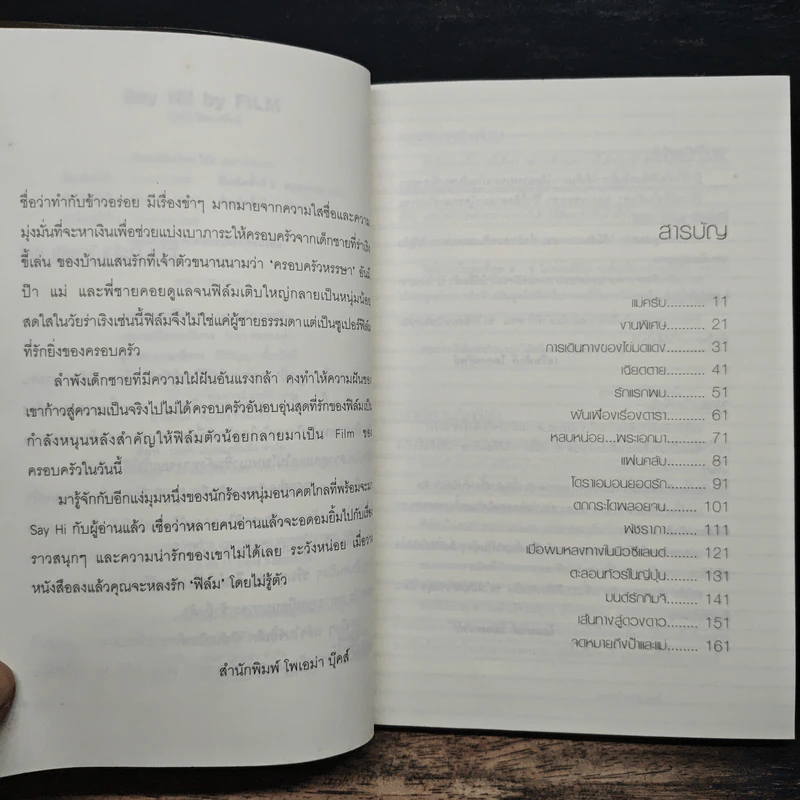 ชื่อว่าทำกับข้าวอร่อย มีเรื่องขำๆ มากมายจากความใสซื่อและความ
มุ่งมั่นที่จะหาเงินเพื่อช่วยแบ่งเบาภาระให้ครอบครัวจากเด็กชายที่ร่าเริง
ขี้เล่น ของบ้านแสนรักที่เจ้าตัวขนานนามว่า ‘ครอบครัวหรรษา’ อันมี
ป๊า แม่ และพี่ชายคอยดูแลจนฟิล์มเติบใหญ่กลายเป็นหนุ่มน้อย
สดใสในวัยร่าเริงเช่นนี้ฟิล์มจึงไม่ใช่แค่ผู้ชายธรรมดาแต่เป็นซูเปอร์ฟิล์ม
ที่รักยิ่งของครอบครัว
ลำพังเด็กชายที่มีความใฝ่ฝันอันแรงกล้า คงทำให้ความฝันของ
เขาก้าวสู่ความเป็นจริงไปไม่ได้ครอบครัวอันอบอุ่นสุดที่รักของฟิล์มเป็น
กำลังหนุนหลังสำคัญให้ฟิล์มตัวน้อยกลายมาเป็น Film ของ
ครอบครัวในวันนี้
มารู้จักกับอีกแง่มุมหนึ่งของนักร้องหนุ่มอนาคตไกลที่พร้อมจะมา
Say Hi กับผู้อ่านแล้ว เชื่อว่าหลายคนอ่านแล้วจะอดอมยิ้มไปกับเรื่อง
ราวสนุกๆ และความน่ารักของเขาไม่ได้เลย ระวังหน่อย เมื่อวาง
หนังสือลงแล้วคุณจะหลงรัก ‘ฟิล์ม’ โดยไม่รู้ตัว
สำนักพิมพ์ โพเอม่า บุ๊คส์
สารบัญ
แม่ครับ.......... 11
งานพิเศษ.......... 21
การเดินทางของไข่มดแดง.......... 31
เฉียดตาย.......... 41
รักแรกพบ.......... 51
ฟันเฟืองเรื่องดารา.......... 61
หลบหน่อย...พระเอกมา.......... 71
แฟนคลับ.......... 81
โดราเอมอนยอดรัก.......... 91
ตกกระไดพลอยจน.......... 101
พัชราภา.......... 111
เมื่อผมหลงทางในนิวซีแลนด์.......... 121
ตะลอนทัวร์ในญี่ปุ่น.......... 131
มนต์รักกิมจิ.......... 141
เส้นทางสู่ดวงดาว.......... 151
จดหมายถึงป๊าและแม่........ 161